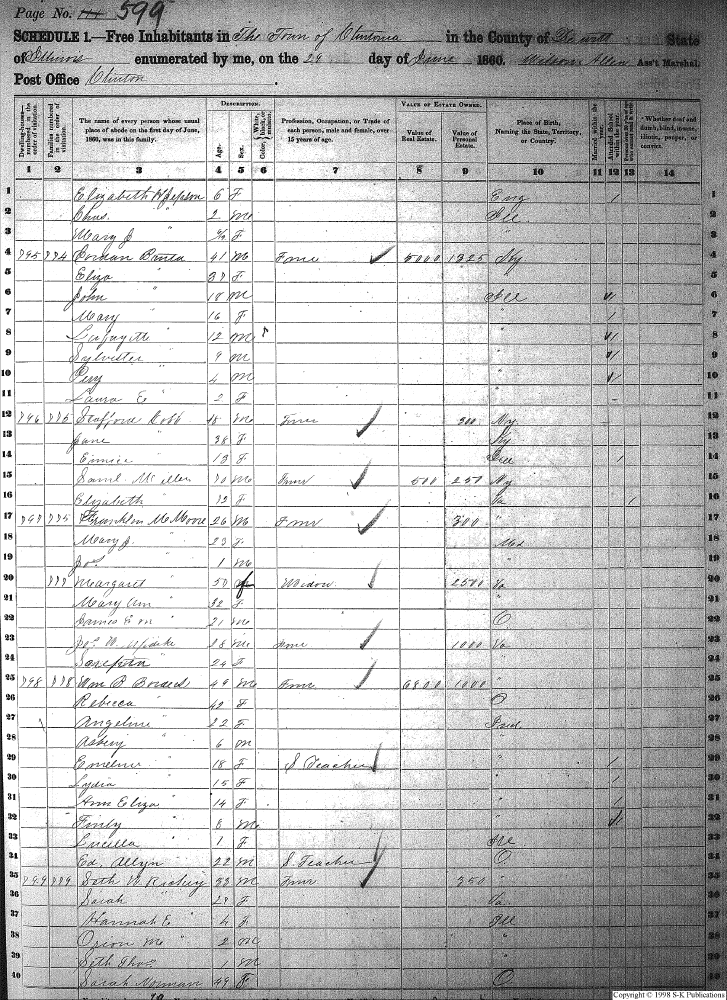 Page No. 599
SCHEDULE 1.—Free Inhabitants in The Town of Clintonia in the County of De witt State
of Illinois enumerated by me, on the 29 day of June 1860. Wilson Allen Ass't Marshal.
Post Office Clinton
DESCRIPTION. VALUE OF ESTATE OWNED.
Dwelling-houses— numbered in the order of visitation. Families numbered in the order of visitation. The name of every person whose usual place of abode on the first day of June, 1860, was in this family. Age. Sex. Color, White, black, or mulatto. Profession, Occupation, or Trade of each person, male and female, over 15 years of age. Value of Real Estate. Value of Personal Estate. Place of Birth, Naming the State, Territory, or Country. Married within the year. Attended School within the year. Whether deaf and dumb, blind, insane, idiotic, pauper, or convict.
1 2 3 4 5 6 7 8 9 10 11 12 13 14
1 Elizabeth Jepson 6 F Eng / 1
2 Chas. " 2 M Ill 2
3 Mary J " F " 3
4 795 774 Banta 41 M Farmer 5000 1325 Ky 4
5 Eliza " 37 F " 5
6 John " 18 M Ill / 6
7 Mary " 16 F " / 7
8 Lafayette " 12 M " / 8
9 Sylvester " 9 M " / 9
10 Perry " 4 M " / 10
11 Laura E " 2 F " 11
12 796 775 Stafford Cobb M Farmer 300 Ny 12
13 Jane " 38 F Ky 13
14 Eunice " 13 F Ill / 14
15 Saml. 70 M Farmer 500 250 Ny 15
16 Elizabeth " 72 F Va / 16
17 797 Franklin McMoore 26 M Farmer 300 " 17
18 Mary J. " 23 F Md 18
19 Jos " 1 M " 19
20 777 Margaret " 50 f Widow 2500 Va 20
21 Mary Ann " 32 F " 21
22 James " 21 M O 22
23 Jos. W. Updike 28 M Farmer 1000 Va 23
24 Sarepta " 24 F " 24
25 798 778 Wm B 49 M Farmer 6800 1000 " 25
26 Rebecca " 42 F O 26
27 Angeline " 22 F Ind 27
28 Asbury " 6 M " 28
29 Emeline " 18 F S Teacher " / 29
30 Lydia " 15 F " / 30
31 Ann Eliza " 14 F " / 31
32 Finly " 8 M " / 32
33 Lucilla " 1 F Ill 33
34 Ed. Allyn 22 M S Teacher O 34
35 799 779 Seth W Richey 33 M Farmer 350 " 35
36 Sarah " 27 F Va 36
37 Hannah E " 4 F Ill 37
38 Orson M " 2 M " 38
39 Seth Thos " 1 M " 39
40 Sarah Norman 49 F O 40
Copyright © 1998 S-K Publications